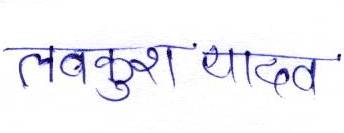 लवकुश यादव